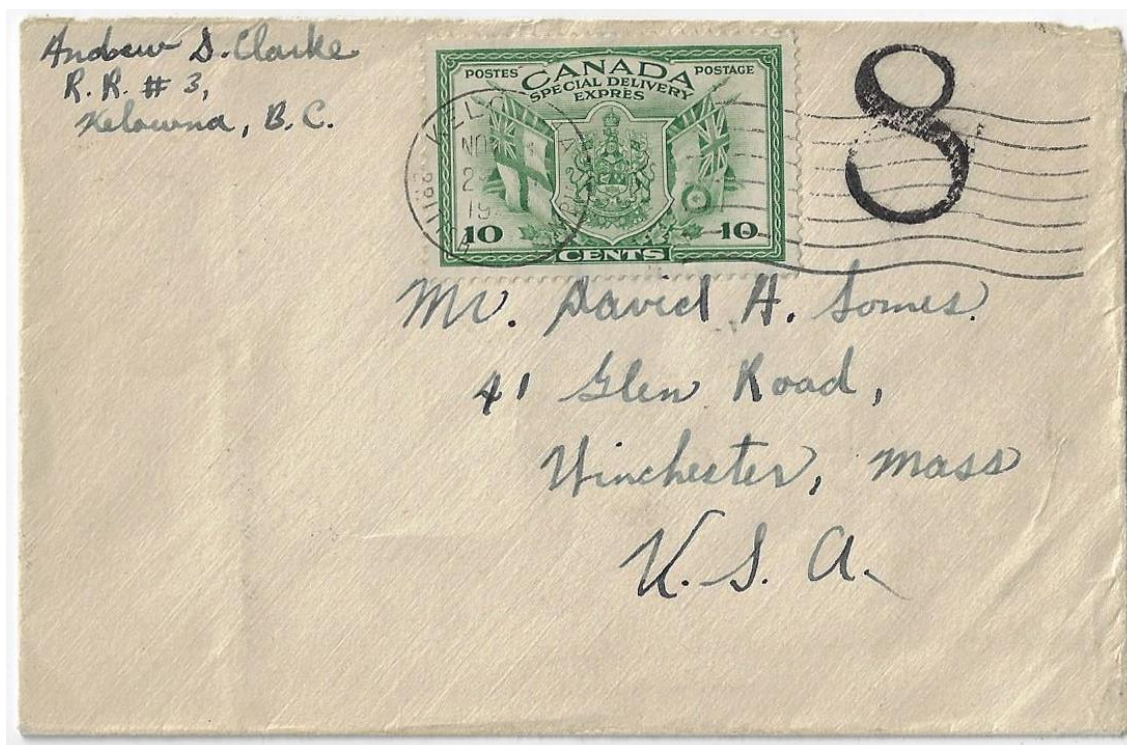 Andrew S. Clarke
R. R. # 3,
Kelowna, B. C.
POSTES CANADA POSTAGE
SPECIAL DELIVERY
EXPRES
10 10
CENTS
8
Mr. David H. Somes.
41 Glen Road,
Winchester, Mass
U. S. A.